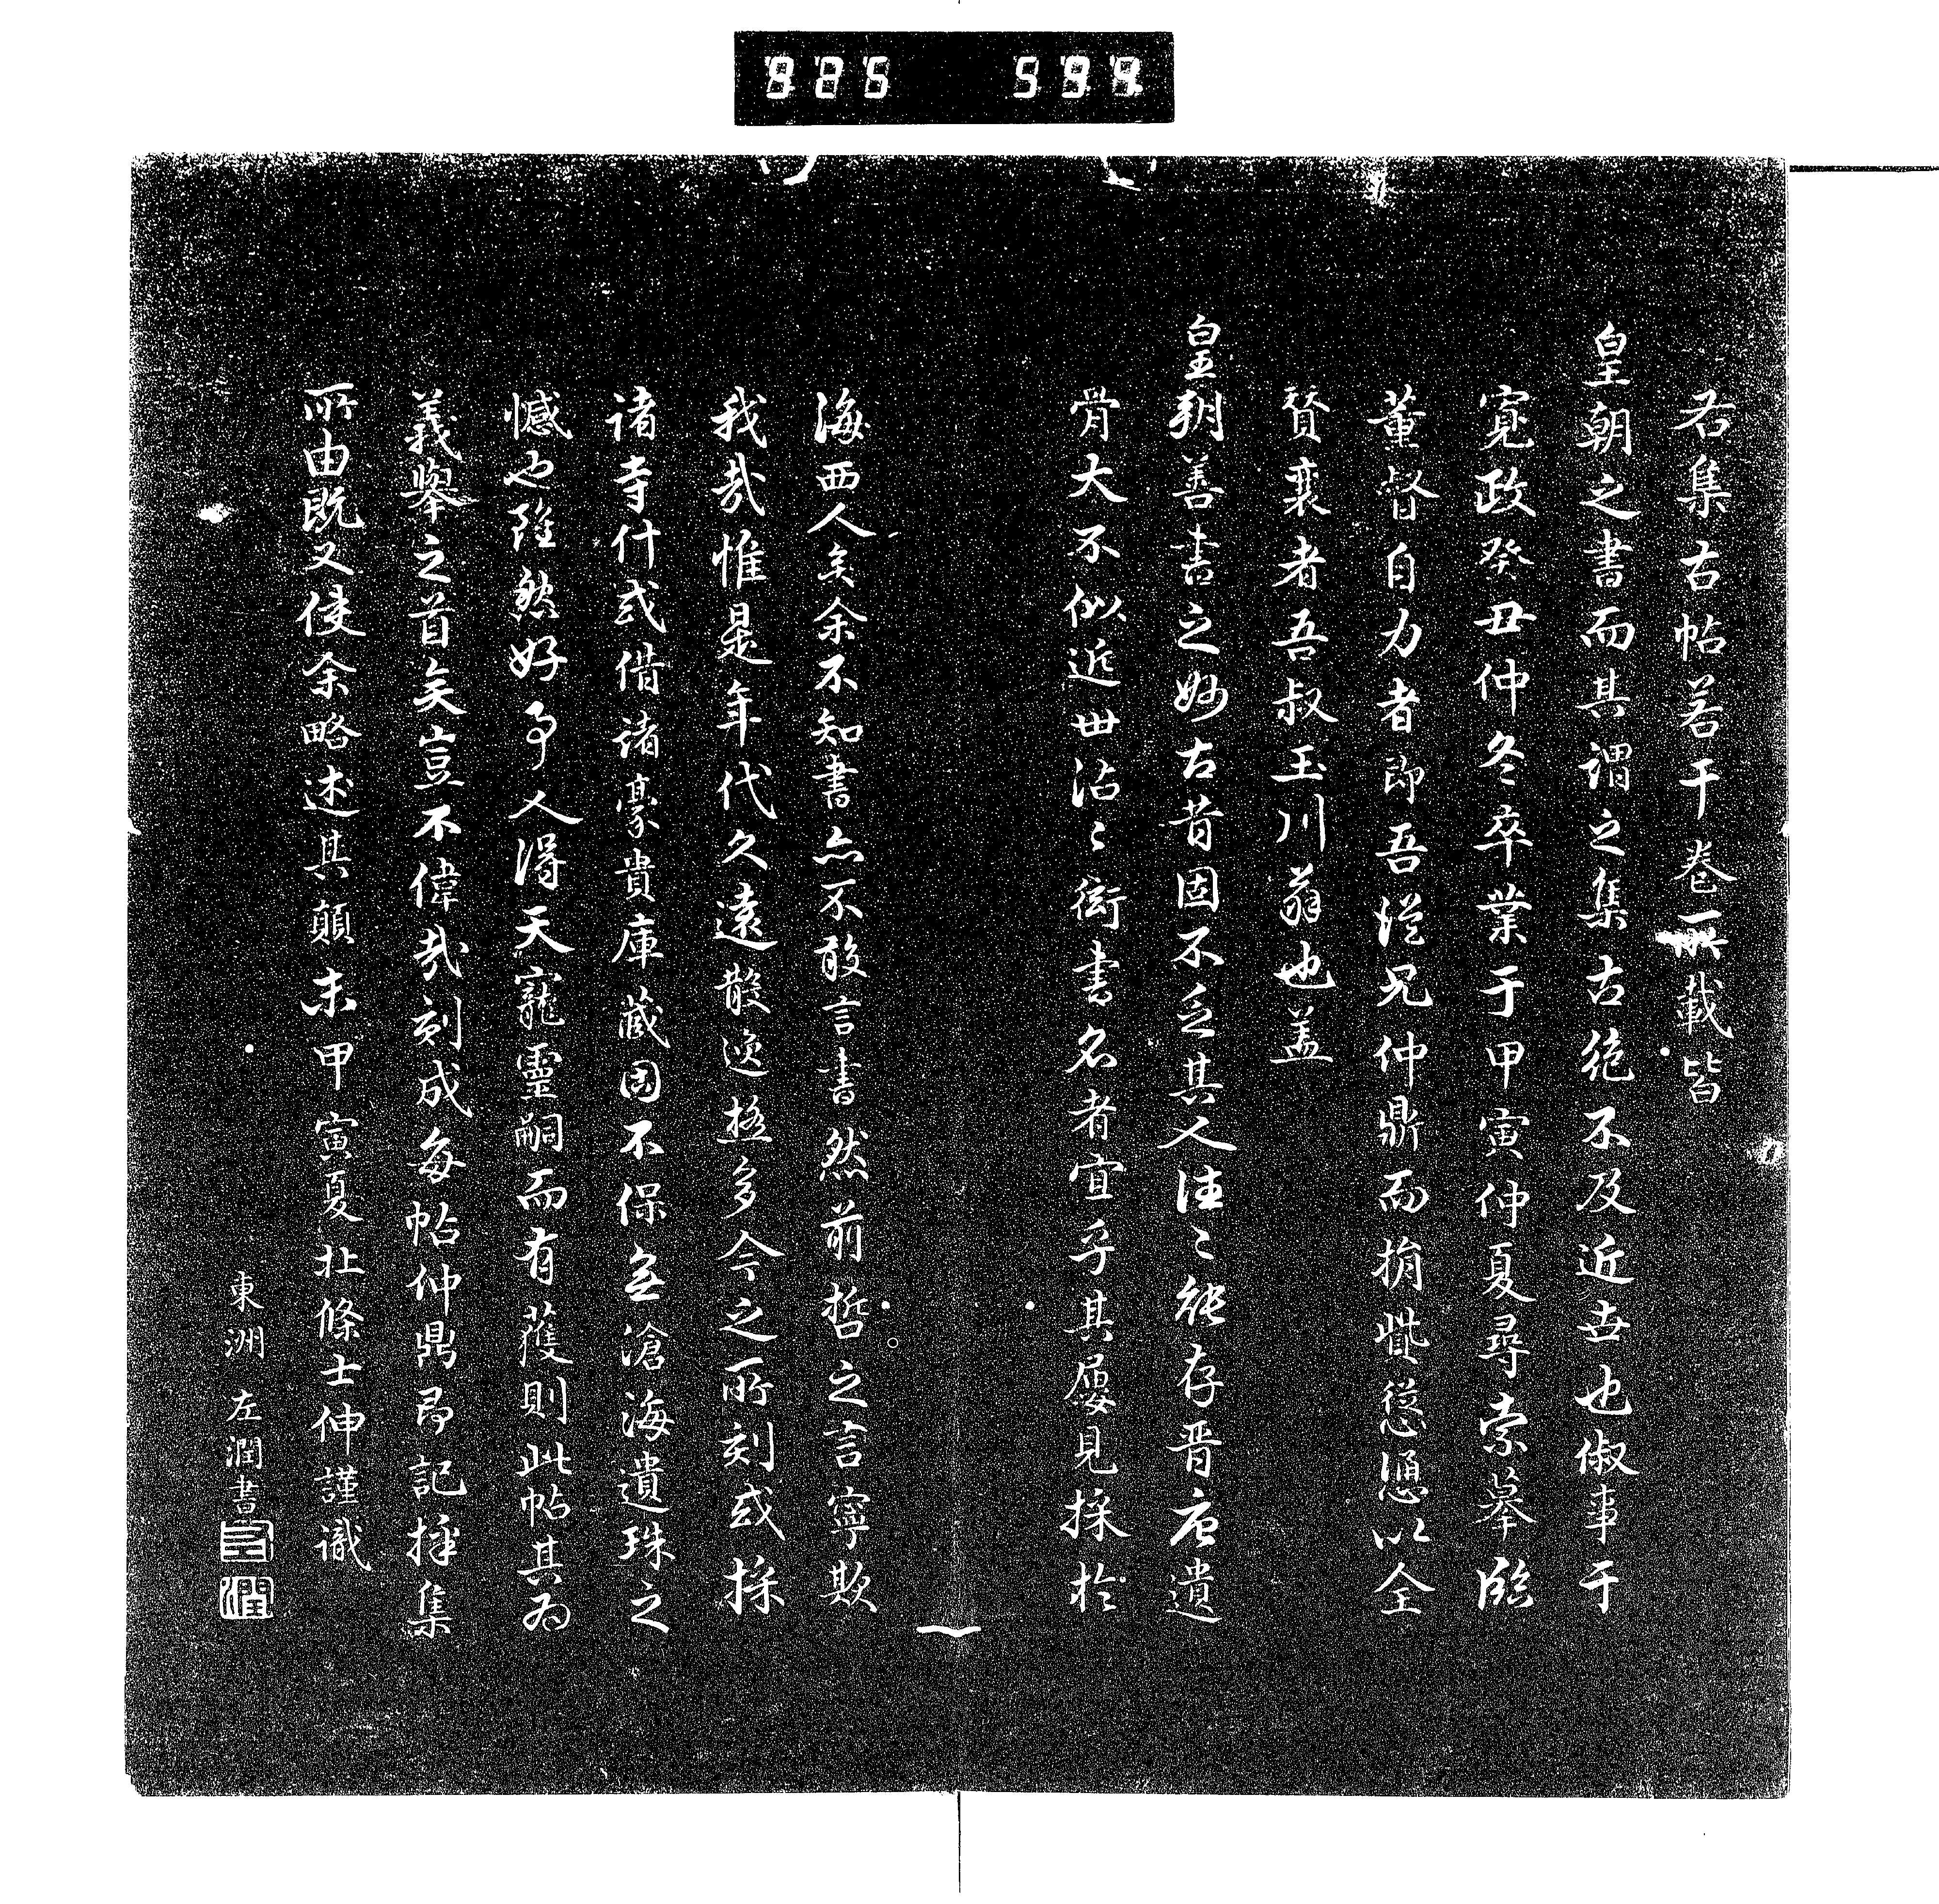 925 594
右集古帖若干卷所載皆
皇朝之書而其謂之集古絶不及近世也俶事于
寛政癸丑仲冬卒業于甲寅仲夏尋索摹臨
董督自力者即吾従兄仲鼎而捐貲慫慂以全
賛襄者吾叔玉川翁也盖
皇朝善書之妙古昔固不乏其人往〻能存晋唐遺
骨大不似近世沾〻衒書名者宜乎其屢見採於
海西人矣余不知書亦不敢言書然前哲之言寧欺
我哉惟是年代久遠散逸極多今之所刻或採
諸寺什或借諸豪貴庫蔵固不保無滄海遺珠之
憾也雖然好事人得天寵靈嗣而有獲則此帖其為
義擧之首矣豈不偉哉刻成毎帖仲鼎即記採集
所由既又使余略述其顛末甲寅夏北條士伸謹識
東洲 左潤書
左潤